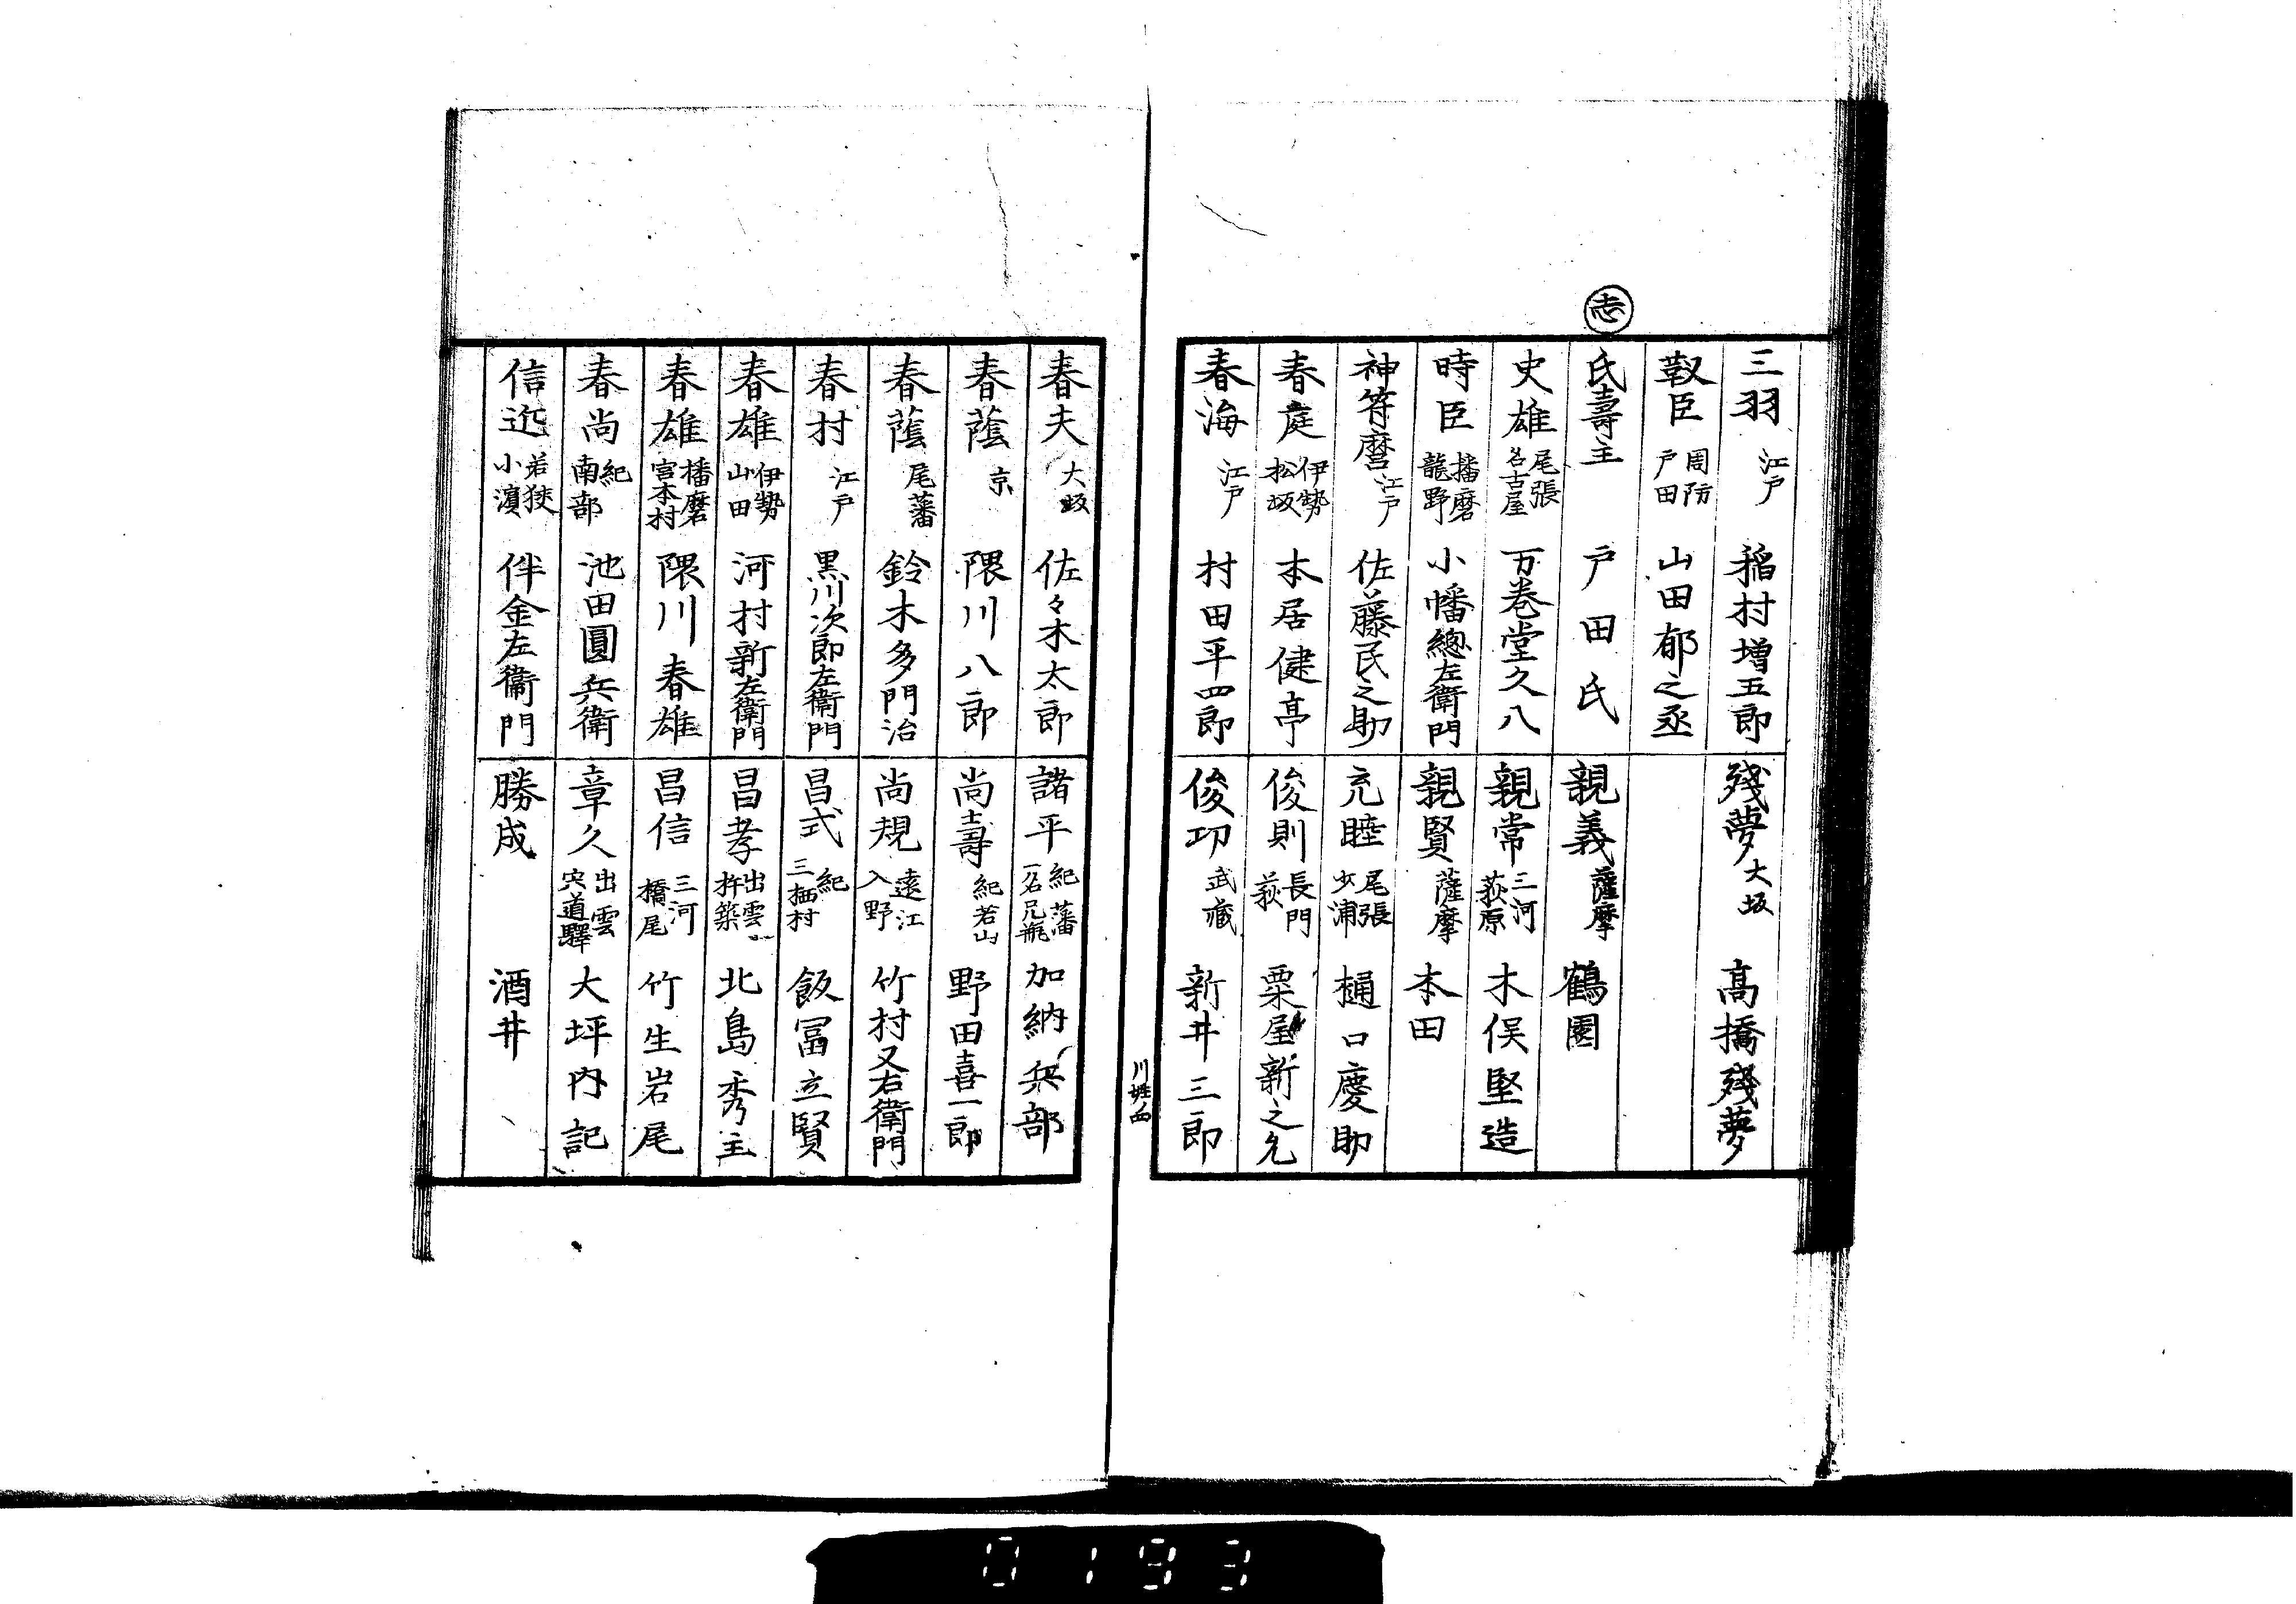 三羽 江戸 稲村増五郎
靫臣 周防戸田 山田郁之丞
志
氏壽主 戸田氏
史雄 尾張名古屋 万巻堂久八
時臣 播磨龍野 小幡總左衛門
神符麿 江戸 佐藤民之助
春庭 伊勢松坂 本居健亭
春海 江戸 村田平四郎
残夢 大坂 高橋残夢
親義 薩摩 鶴園
親常 三河荻原 木俣堅造
親賢 薩摩 本田
充睦 尾張少浦 樋口慶助
俊則 長門萩 粟屋新之允
俊功 武蔵 新井三郎
春夫 大坂 佐々木太郎
春蔭 京 隈川八郎
春蔭 尾藩 鈴木多門治
春村 江戸 黒川次郎左衛門
春雄 伊勢山田 河村新左衛門
春雄 播磨宮本村 隈川春雄
春尚 紀南部 池田圓兵衛
信近 若狭小濵 伴金左衛門
諸平 紀藩一名兄瓶 加納兵部
尚壽 紀若山 野田喜一郎
尚規 遠江入野 竹村又右衛門
昌式 紀三栖村 飯冨立賢
昌孝 出雲杵築 北島秀主
昌信 三河橋尾 竹生岩尾
章久 出雲宍道驛 大坪内記
勝成 酒井
0193